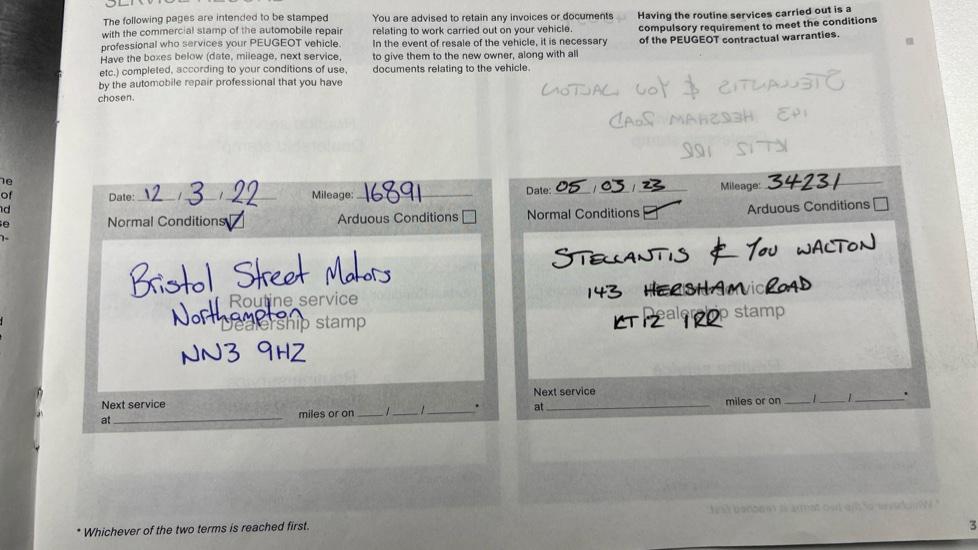 SERVICE RECORD
The following pages are intended to be stamped
with the commercial stamp of the automobile repair
professional who services your PEUGEOT vehicle.
Have the boxes below (date, mileage, next service,
etc.) completed, according to your conditions of use,
by the automobile repair professional that you have
chosen.
You are advised to retain any invoices or documents
relating to work carried out on your vehicle.
In the event of resale of the vehicle, it is necessary
to give them to the new owner, along with all
documents relating to the vehicle.
Having the routine services carried out is a
compulsory requirement to meet the conditions
of the PEUGEOT contractual warranties.
Date: 12 / 3 / 22 Mileage: 16891
Normal Conditions Arduous Conditions
Bristol Street Motors
Routine service
Northampton
Dealership stamp
NN3 9HZ
Next service
at miles or on / / *
Date: 05 / 03 / 23 Mileage: 34231
Normal Conditions Arduous Conditions
STELLANTIS & YOU WALTON
143 HERSHAM ROAD
KT12 1RR
Dealership stamp
Next service
at miles or on / / *
* Whichever of the two terms is reached first.
3